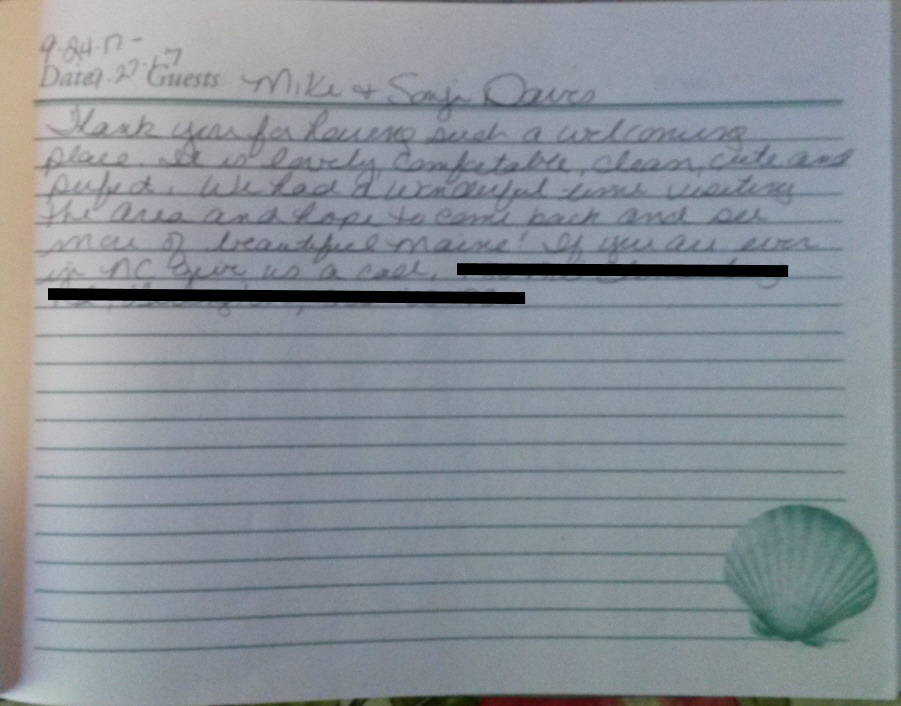 9-24-17 -
Date 9-27-17 Guests Mike + Sonja Davis
Thank you for having such a welcoming
place. It is lovely, comfortable, clean, cute and
perfect. We had a wonderful time visiting
the area and hope to come back and see
more of beautiful Maine! If you are ever
in NC give us a call.